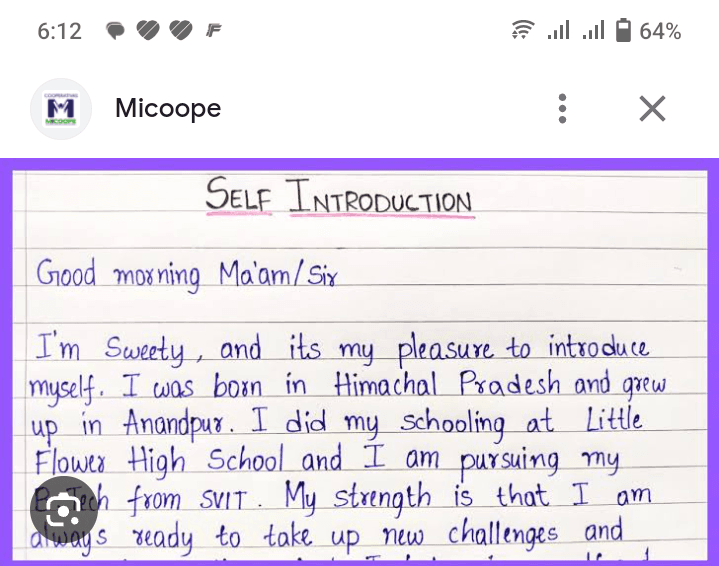 6:12
64%
COOPERATIVAS
MICOOPE
Micoope
SELF INTRODUCTION
Good morning Ma'am/Sir
I'm Sweety, and its my pleasure to introduce
myself. I was born in Himachal Pradesh and grew
up in Anandpur. I did my schooling at Little
Flower High School and I am pursuing my
B.Tech from SVIT. My strength is that I am
always ready to take up new challenges and